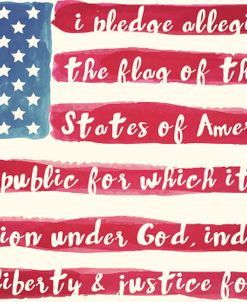 i pledge alleg
the flag of th
States of Amer
public for which it
ion under God, ind
liberty & justice fo